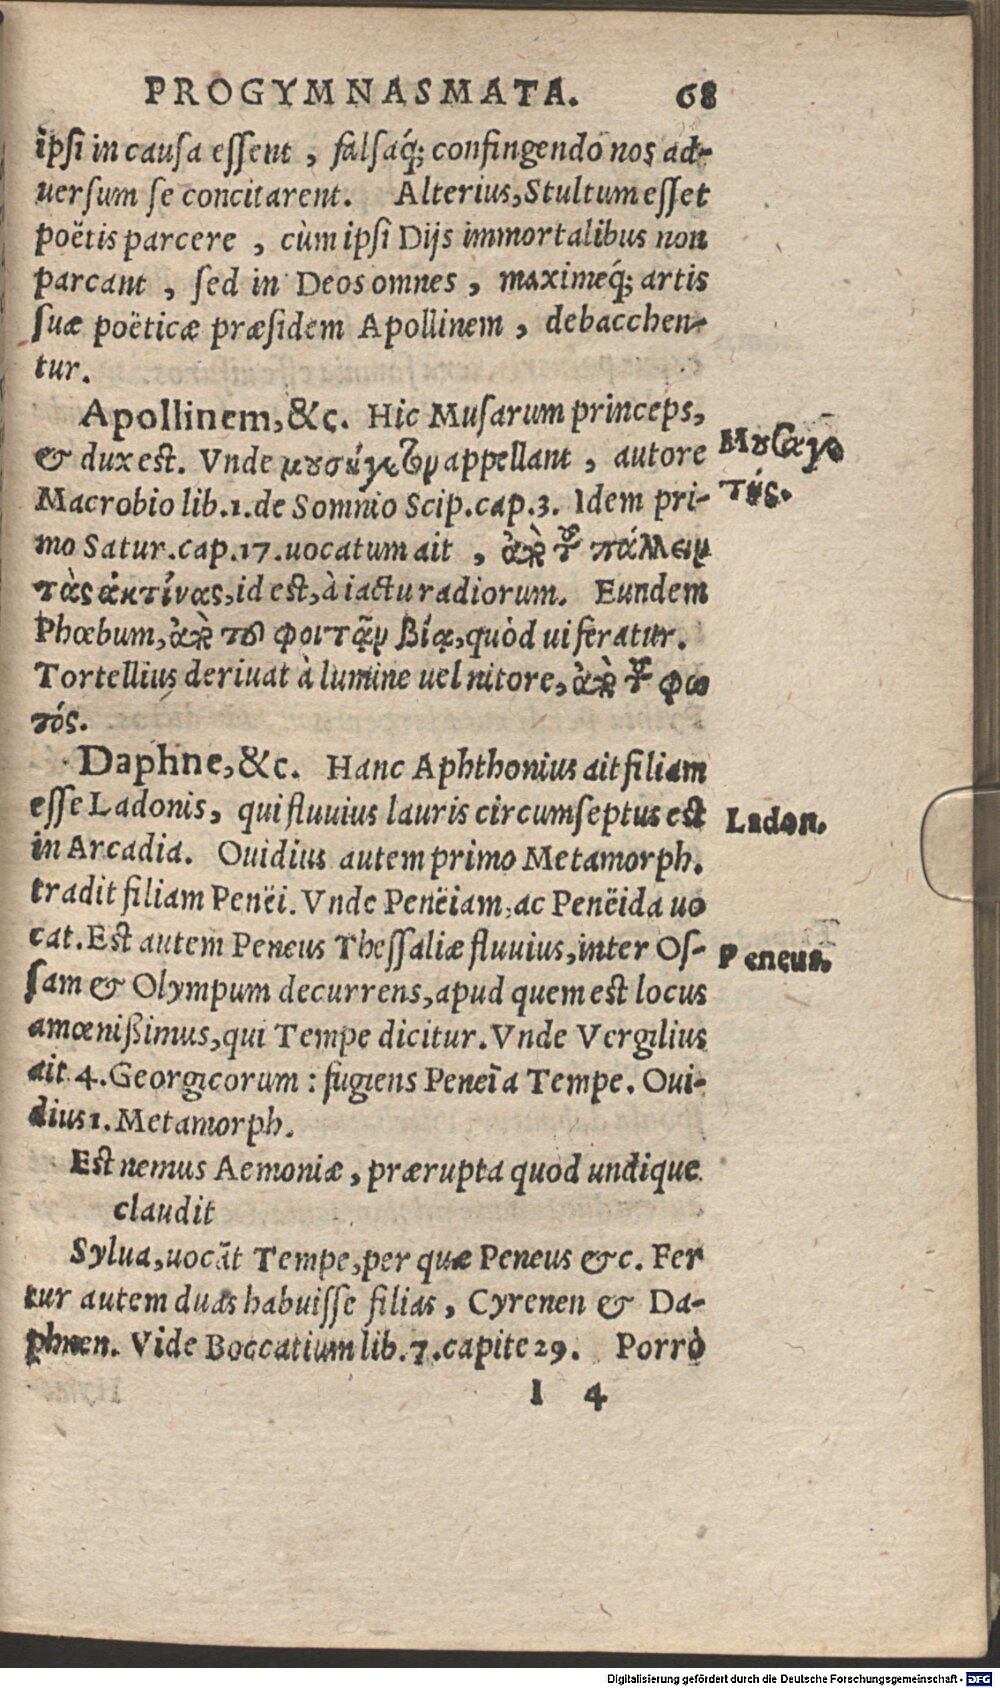 PROGYMNASMATA. 68
ipsi in causa essent, falsaq́; confingendo nos ad-
uersum se concitarent. Alterius, Stultum esset
poëtis parcere, cùm ipsi Dijs immortalibus non
parcant, sed in Deos omnes, maximeq́; artis
suæ poëticæ præsidem Apollinem, debacchen-
tur.
Apollinem, &c. Hic Musarum princeps,
& dux est. Vnde appellant, autore
Μουσαγε
τής.
Macrobio lib.1.de Somnio Scip.cap.3. Idem pri-
mo Satur.cap.17.uocatum ait, ἀπὸ τοῦ πάλλειν
τὰς ἀκτίνας, id est, à iactu radiorum. Eundem
Phœbum, ἀπὸ τοῦ φοιτᾶν βίᾳ, quòd ui feratur.
Tortellius deriuat à lumine uel nitore, ἀπὸ τοῦ φω
τός.
Daphne, &c. Hanc Aphthonius ait filiam
esse Ladonis, qui fluuius lauris circumseptus est
Ladon.
in Arcadia. Ouidius autem primo Metamorph.
tradit filiam Penëi. Vnde Penëiam, ac Penëida uo
cat. Est autem Peneus Thessaliæ fluuius, inter Os-
Peneus.
sam & Olympum decurrens, apud quem est locus
amœnißimus, qui Tempe dicitur. Vnde Vergilius
ait 4. Georgicorum: fugiens Peneïa Tempe. Oui-
dius 1. Metamorph.
Est nemus Aemoniæ, prærupta quod undique
claudit
Sylua, uocāt Tempe, per quæ Peneus &c. Fer
tur autem duas habuisse filias, Cyrenen & Da-
phnen. Vide Boccatium lib.7.capite 29. Porrò
I 4
Digitalisierung gefördert durch die Deutsche Forschungsgemeinschaft - DFG